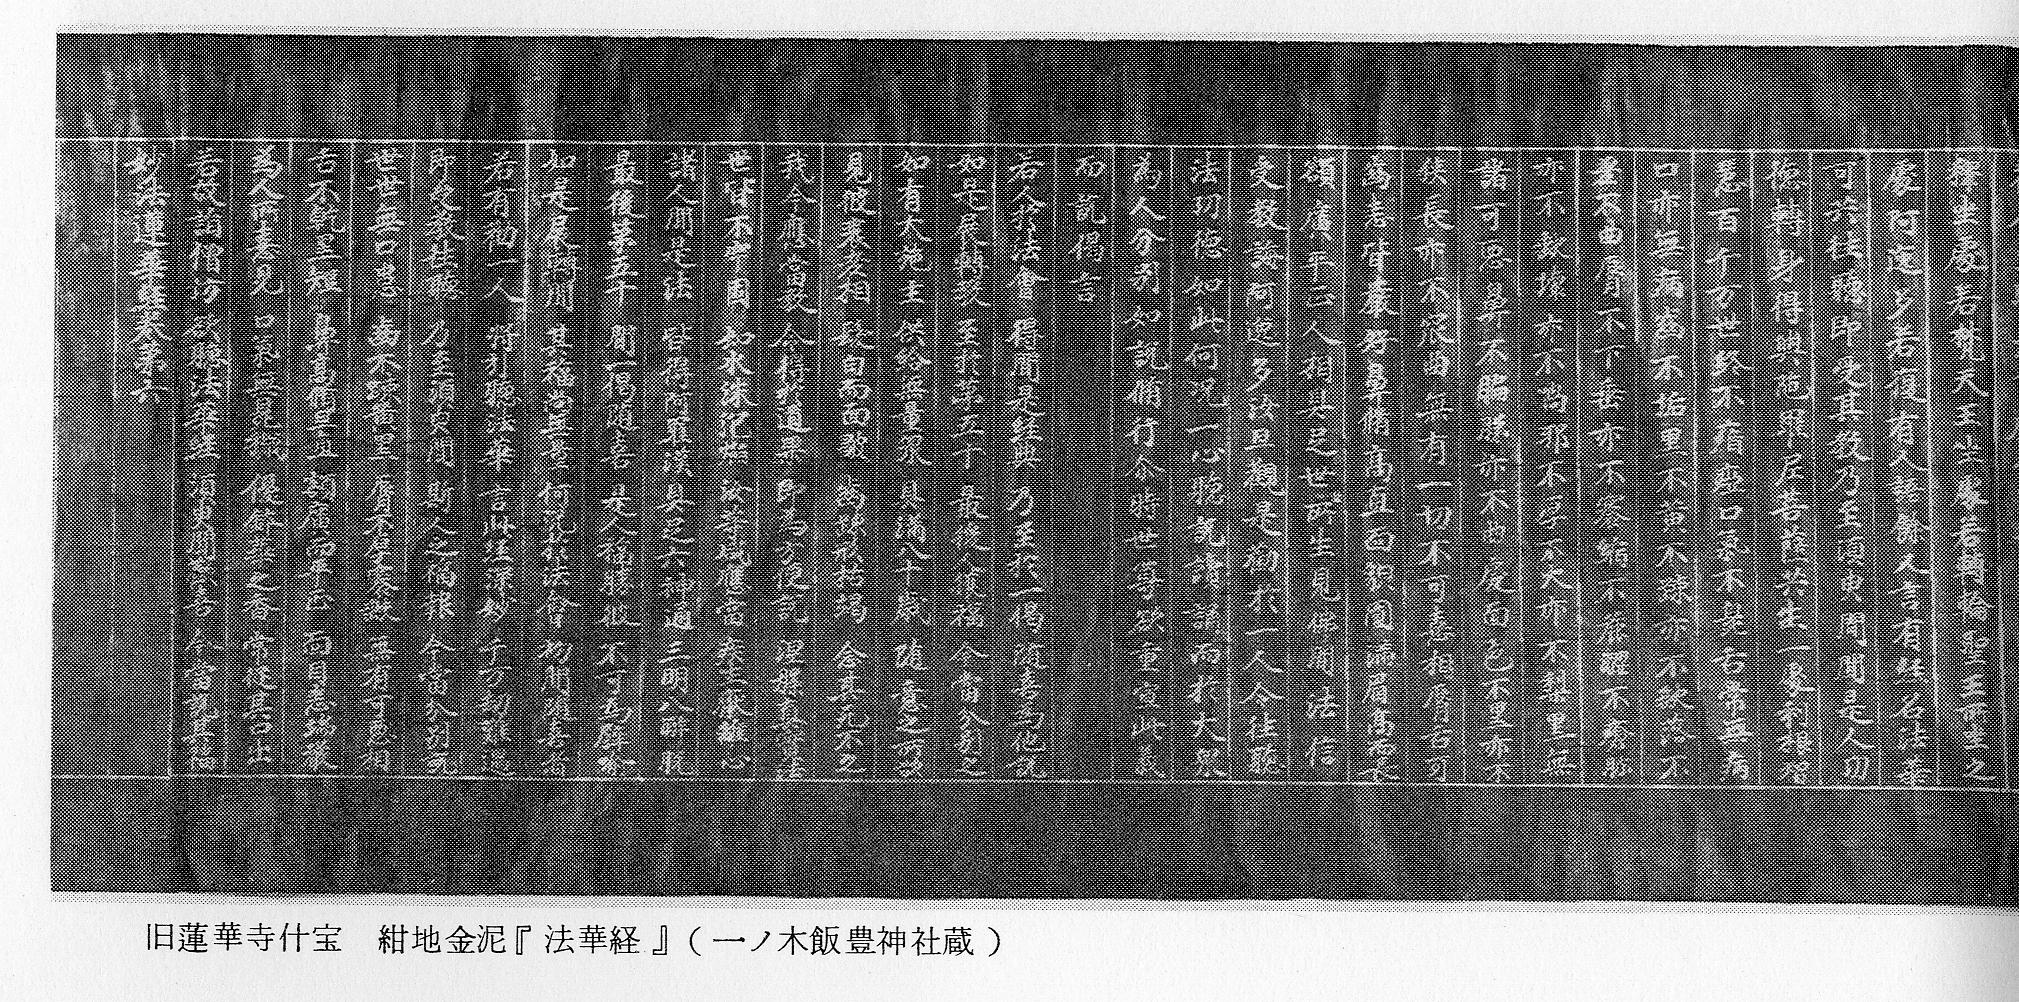 釋坐處若梵天王坐處若轉輪聖王所坐之
處阿逸多若復有人語餘人言有經名法華
可共往聽即受其教乃至須臾間聞是人功
德轉身得與陀羅尼菩薩共生一處利根智
慧百千万世終不瘖瘂口氣不臭舌常無病
口亦無病齒不垢黑不黃不踈亦不缺落不
差不曲脣不下垂亦不褰縮不麤澁不瘡胗
亦不缺壞亦不喎邪不厚不大亦不梨黑無
諸可惡鼻不匾㔸亦不曲戾面色不黑亦不
狹長亦不窊曲無有一切不可喜相脣舌牙
齒悉皆嚴好鼻脩高直面貌圓滿眉高而長
額廣平正人相具足世世所生見佛聞法信
受教誨阿逸多汝且觀是勸於一人令往聽
法功德如此何況一心聽說讀誦而於大眾
為人分別如說修行尒時世尊欲重宣此義
而說偈言
若人於法會 得聞是經典 乃至於一偈 隨喜為他說
如是展轉教 至于第五十 最後人獲福 今當分別之
如有大施主 供給無量眾 具滿八十歲 隨意之所欲
見彼衰老相 髮白而面皺 齒踈形枯竭 念其死不久
我今應當教 令得於道果 即為方便說 涅槃真實法
世皆不牢固 如水沫泡焰 汝等咸應當 疾生厭離心
諸人聞是法 皆得阿羅漢 具足六神通 三明八解脫
最後第五十 聞一偈隨喜 是人福勝彼 不可為譬喻
如是展轉聞 其福尚無量 何況於法會 初聞隨喜者
若有勸一人 將引聽法華 言此經深妙 千万劫難遇
即受教往聽 乃至須臾聞 斯人之福報 今當分別說
世世無口患 齒不踈黃黑 脣不厚褰缺 無有可惡相
舌不乾黑短 鼻高脩且直 額廣而平正 面目悉端嚴
為人所喜見 口氣無臭穢 優鉢華之香 常從其口出
若故詣僧坊 欲聽法華經 須臾聞歡喜 今當說其福
妙法蓮華經卷第六
旧蓮華寺什宝 紺地金泥『法華経』(一ノ木飯豊神社蔵)